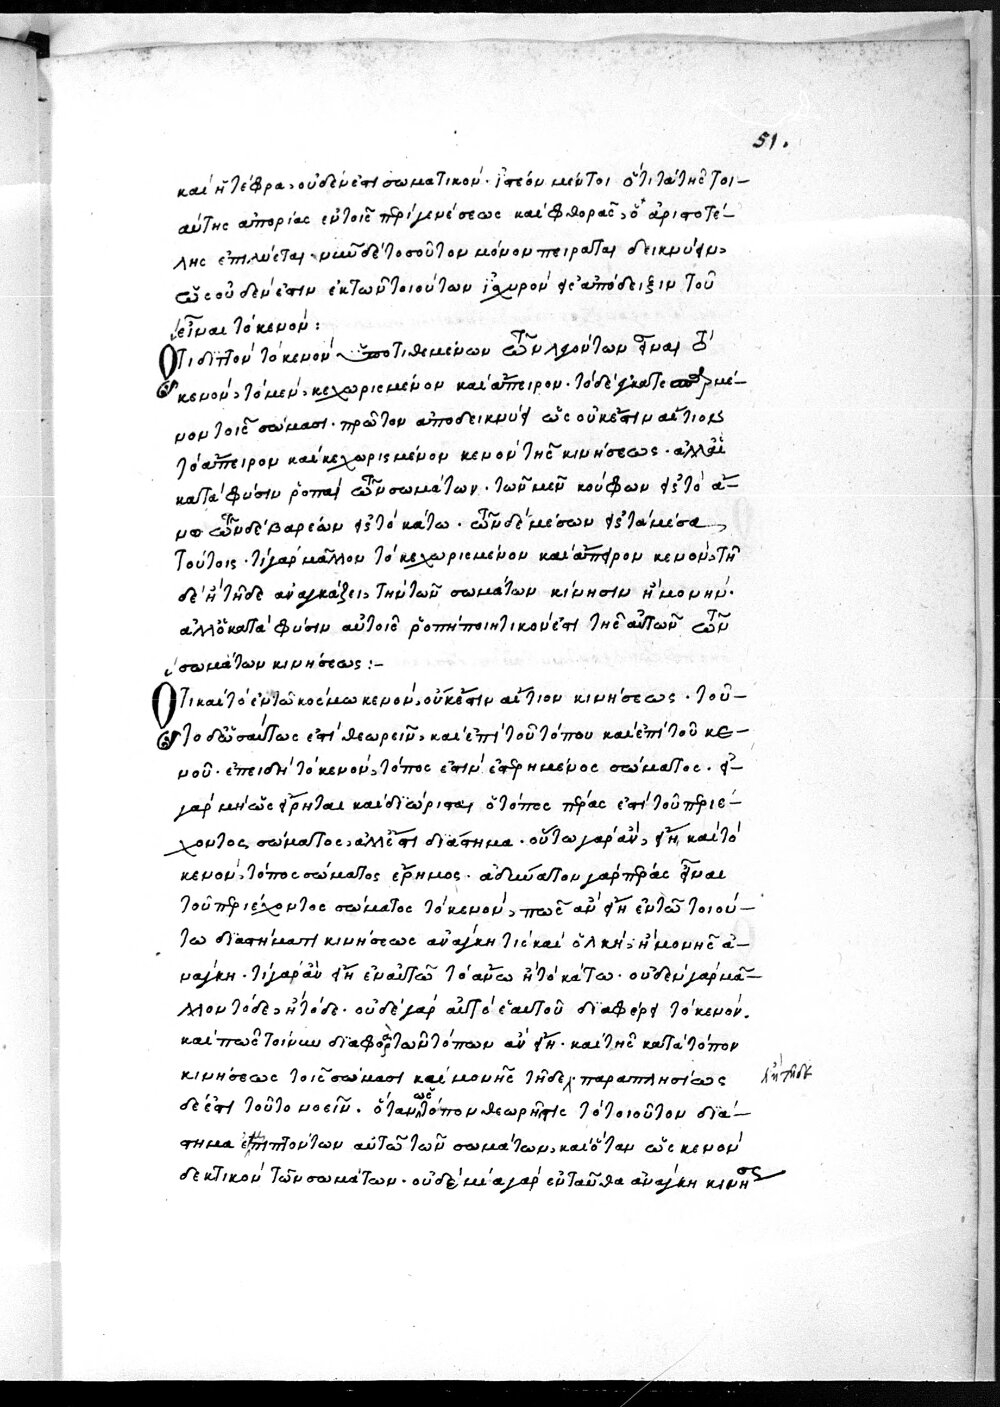 51.
καὶ ἡ τέφρα, οὐδὲν ἐπὶ σωματικόν. ἰστέον μέντοι ὅτι τὰ τῆς τοι-
αύτης ἀπορίας ἐν τοῖς περὶ γενέσεως καὶ φθορᾶς, ὁ ἀριστοτέ-
λης ἐπιλύεται. νῦν δὲ τοσοῦτον μόνον πειρᾶται δεικνύειν,
ὡς οὐδέν ἐστιν ἐκ τῶν τοιούτων ἰσχυρὸν εἰς ἀπόδειξιν τοῦ
εἶναι τὸ κενόν:
Ὅτι διττὸν τὸ κενὸν ὑποτιθεμένων τῶν λεγόντων εἶναι τὸ
κενόν, τὸ μὲν, κεχωρισμένον καὶ ἄπειρον. τὸ δὲ ἐγκατεσπαρμέ-
νον τοῖς σώμασι. πρῶτον ἀποδεικνύει ὡς οὐκ ἔστιν αἴτιον
τὸ ἄπειρον καὶ κεχωρισμένον κενὸν τῆς κινήσεως. ἀλλ' αἱ
κατὰ φύσιν ῥοπαὶ τῶν σωμάτων. τῶν μὲν κούφων εἰς τὸ ἄ-
νω τῶν δὲ βαρέων εἰς τὸ κάτω. τῶν δὲ μέσων εἰς τὰ μέσα
τούτοις. τί γὰρ μᾶλλον τὸ κεχωρισμένον καὶ ἄπειρον κενόν, τῇ
δε ἢ τῇδε ἀναγκάζει, τὴν τῶν σωμάτων κίνησιν ἢ μονήν.
ἀλλ' ὁ κατὰ φύσιν αὐτοῖς ῥοπὴ ποιητικόν ἐστι τῆς αὐτῶν τῶν
σωμάτων κινήσεως:-
Ὅτι καὶ τὸ ἐν τῶ κόσμω κενὸν, οὐκ ἔστιν αἴτιον κινήσεως. τοῦ-
το δ' ὡσαύτως ἐστὶ θεωρεῖν, καὶ ἐπὶ τοῦ τόπου καὶ ἐπὶ τοῦ κε-
νοῦ. ἐπειδὴ τὸ κενὸν, τόπος ἐστὶν ἐστερημένος σώματος. εἰ
γὰρ μὴ ὡς εἴρηται καὶ διώρισται ὁ τόπος πέρας ἐστὶ τοῦ περιέ-
χοντος σώματος, ἀλλ' ἔστι διάστημα. οὕτω γὰρ ἂν, εἴη καὶ τὸ
κενὸν, τόπος σώματος ἔρημος. ἀδύνατον γὰρ πέρας εἶναι
τοῦ περιέχοντος σώματος τὸ κενόν, πῶς ἂν εἴη ἐν τῶ τοιού-
τω διαστήματι κινήσεως ἀνάγκη τὶς καὶ ὁλκὴ, ἢ μονῆς ἀ-
νάγκη. τί γὰρ ἂν εἴη ἐν αὐτῶ τὸ ἄνω ἢ τὸ κάτω. οὐδὲν γὰρ μᾶ-
λλον τόδε, ἢ τόδε. οὐδὲ γὰρ αὐτὸ ἑαυτοῦ διαφέρει τὸ κενόν.
καὶ πῶς τοίνυν διαφορὰ τῶν τόπων ἂν εἴη. καὶ τῆς κατὰ τόπον
κινήσεως τοῖς σώμασι καὶ μονῆς τῇδε, παραπλησίως ἢ τῇδε
δέ ἐστι τοῦτο νοεῖν. ὅταν ὡς τόπον θεωρῇ τις τὸ τοιοῦτον διά-
στημα ἐμπιπτόντων αὐτῶ τῶν σωμάτων, καὶ ὅταν ὡς κενὸν
δεκτικὸν τῶν σωμάτων. οὐδὲ μία γὰρ ἐνταῦθα ἀνάγκη κινήσ